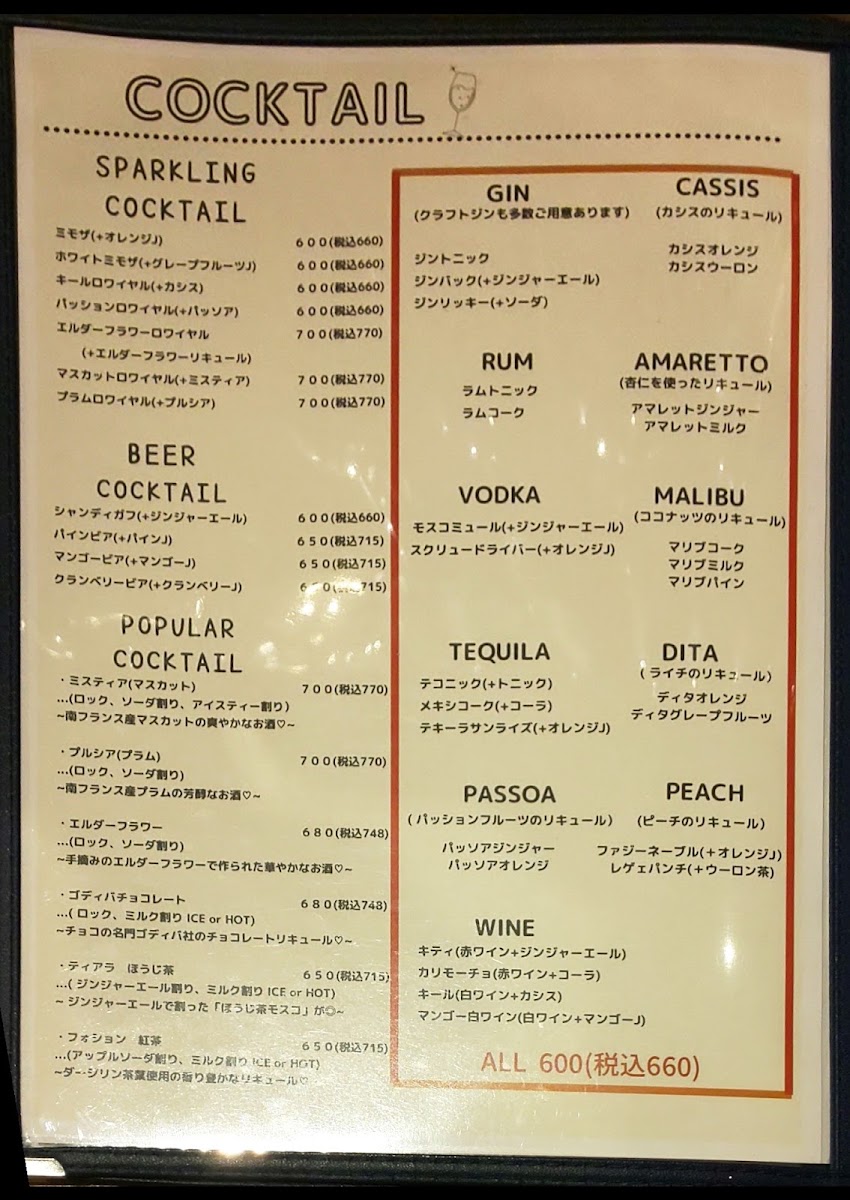 COCKTAIL
SPARKLING
COCKTAIL
ミモザ(+オレンジJ) 600(税込660)
ホワイトミモザ(+グレープフルーツJ) 600(税込660)
キールロワイヤル(+カシス) 600(税込660)
パッションロワイヤル(+パッソア) 600(税込660)
エルダーフラワーロワイヤル 700(税込770)
(+エルダーフラワーリキュール)
マスカットロワイヤル(+ミスティア) 700(税込770)
プラムロワイヤル(+プルシア) 700(税込770)
BEER
COCKTAIL
シャンディガフ(+ジンジャーエール) 600(税込660)
パインビア(+パインJ) 650(税込715)
マンゴービア(+マンゴーJ) 650(税込715)
クランベリービア(+クランベリーJ) 650(税込715)
POPULAR
COCKTAIL
・ミスティア(マスカット) 700(税込770)
…(ロック、ソーダ割り、アイスティー割り)
~南フランス産マスカットの爽やかなお酒♡~
・プルシア(プラム) 700(税込770)
…(ロック、ソーダ割り)
~南フランス産プラムの芳醇なお酒♡~
・エルダーフラワー 680(税込748)
…(ロック、ソーダ割り)
~手摘みのエルダーフラワーで作られた華やかなお酒♡~
・ゴディバチョコレート 680(税込748)
…( ロック、ミルク割り ICE or HOT)
~チョコの名門ゴディバ社のチョコレートリキュール♡~
・ティアラ ほうじ茶 650(税込715)
…( ジンジャーエール割り、ミルク割り ICE or HOT)
~ ジンジャーエールで割った「ほうじ茶モスコ」が◎~
・フォション 紅茶 650(税込715)
…(アップルソーダ割り、ミルク割り ICE or HOT)
~ダージリン茶葉使用の香り豊かなリキュール♡
GIN
(クラフトジンも多数ご用意あります)
ジントニック
ジンバック(+ジンジャーエール)
ジンリッキー(+ソーダ)
CASSIS
(カシスのリキュール)
カシスオレンジ
カシスウーロン
RUM
ラムトニック
ラムコーク
AMARETTO
(杏仁を使ったリキュール)
アマレットジンジャー
アマレットミルク
VODKA
モスコミュール(+ジンジャーエール)
スクリュードライバー(+オレンジJ)
MALIBU
(ココナッツのリキュール)
マリブコーク
マリブミルク
マリブパイン
TEQUILA
テコニック(+トニック)
メキシコーク(+コーラ)
テキーラサンライズ(+オレンジJ)
DITA
( ライチのリキュール)
ディタオレンジ
ディタグレープフルーツ
PASSOA
( パッションフルーツのリキュール)
パッソアジンジャー
パッソアオレンジ
PEACH
(ピーチのリキュール)
ファジーネーブル(＋オレンジJ)
レゲェパンチ(＋ウーロン茶)
WINE
キティ(赤ワイン+ジンジャーエール)
カリモーチョ(赤ワイン+コーラ)
キール(白ワイン+カシス)
マンゴー白ワイン(白ワイン+マンゴーJ)
ALL 600(税込660)